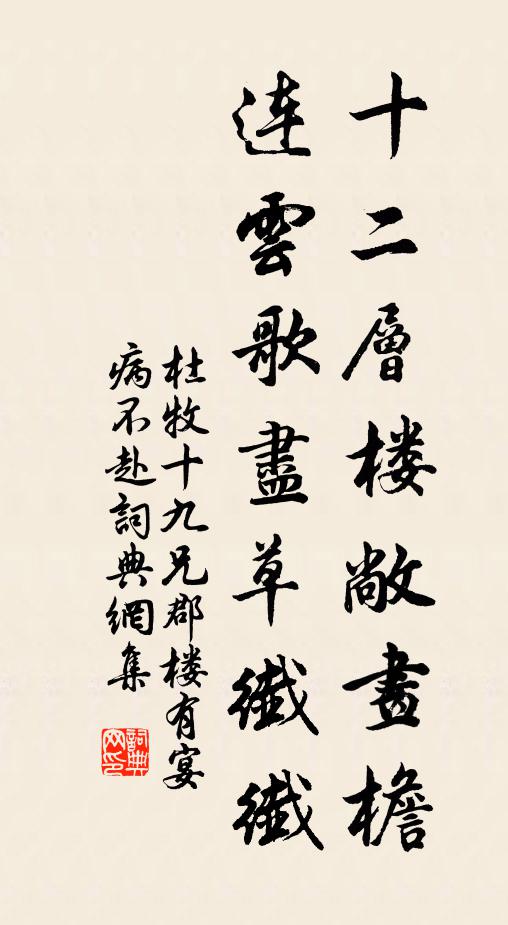 十二層楼敞畫檐
連雲歌盡草纖纖
杜牧十九兄郡楼有宴
病不赴詞典網集
詞典网印